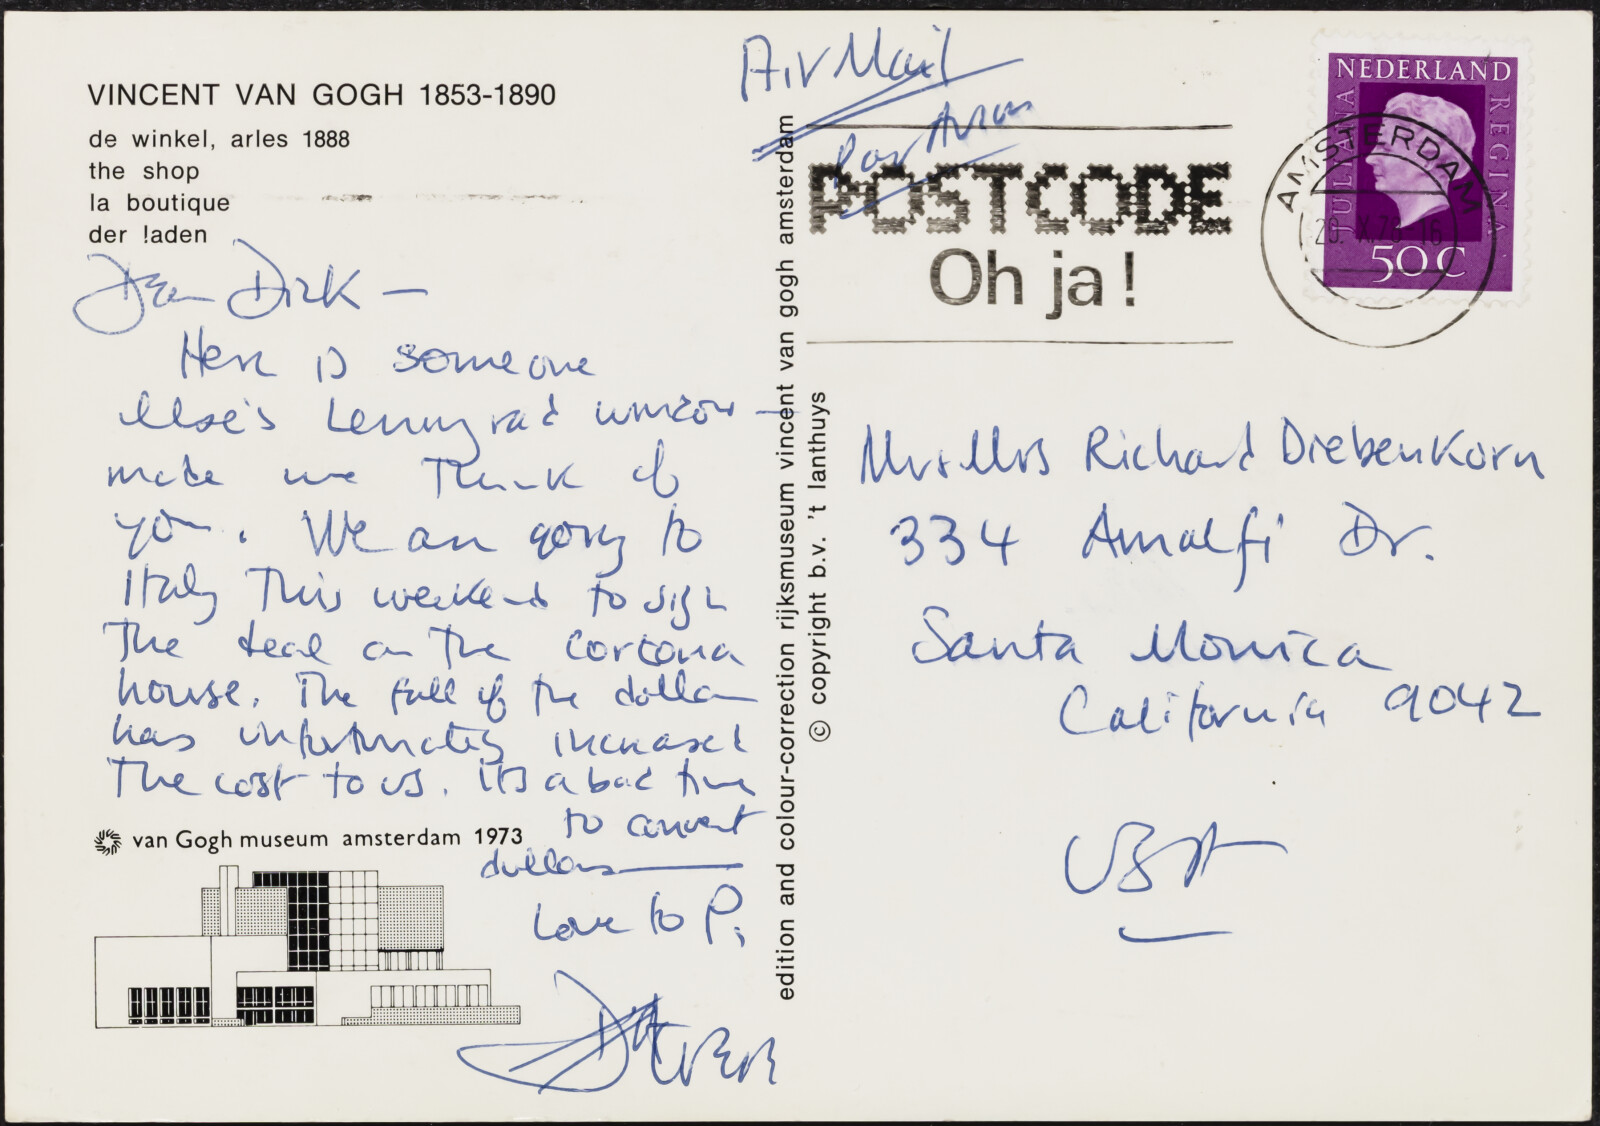 VINCENT VAN GOGH 1853-1890
de winkel, arles 1888
the shop
la boutique
der laden
Dear Dick —
Here is someone
else's Leningrad window —
made me think of
you. We are going to
Italy this weekend to sign
the deal on the Cortona
house. The fall of the dollar
has unfortunately increased
the cost to us. It's a bad time
to convert
dollars —
Love to P.
van Gogh museum amsterdam 1973
edition and colour-correction rijksmuseum vincent van gogh amsterdam
© copyright b.v. 't lanthuys
Air Mail
Par Avion
POSTCODE
Oh ja!
NEDERLAND
JULIANA REGINA
50 C
AMSTERDAM
Mr & Mrs Richard Diebenkorn
334 Amalfi Dr.
Santa Monica
California 9042
USA